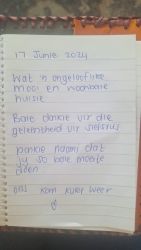 17 Junie 2024
Wat 'n ongelooflike
mooi en woonbare
huisie
Baie dankie vir die
geleentheid vir
dankie naomi dat
jy so baie moeite
doen
ons kom kuier weer